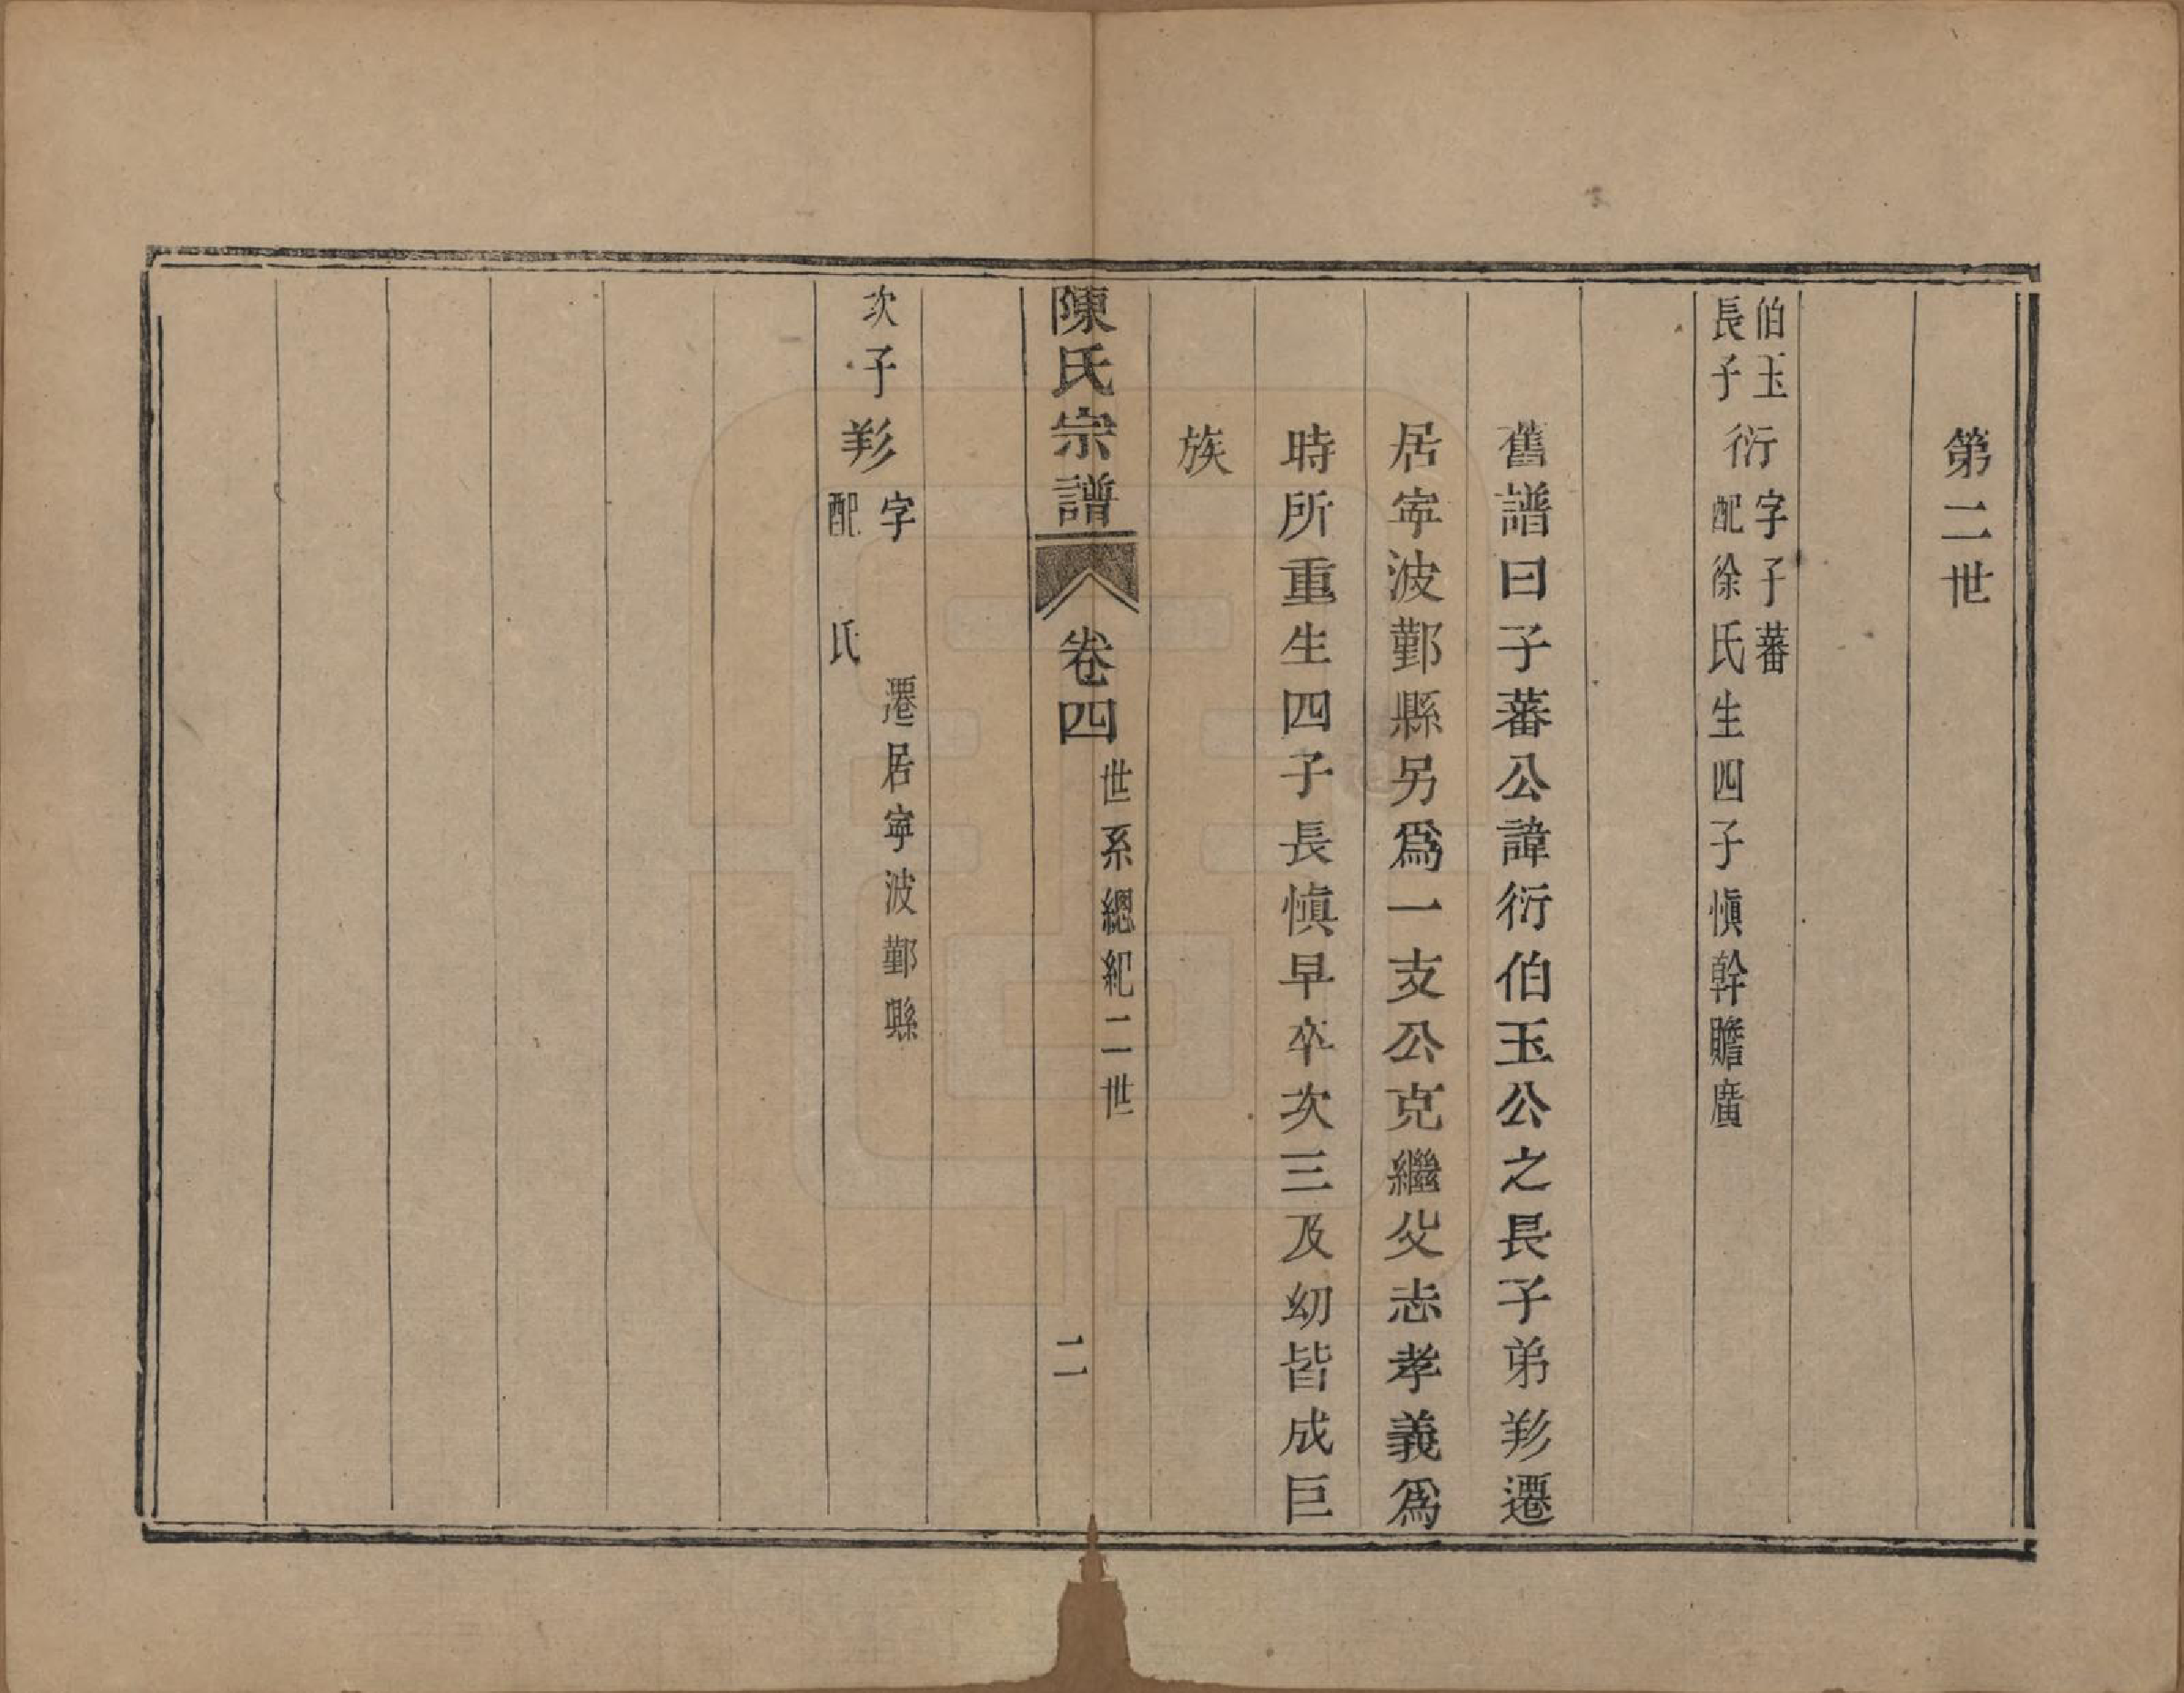 第二世
伯玉
長子
衍
字子蕃
配徐氏生四子慎幹贍廣
舊譜曰子蕃公諱衍伯玉公之長子弟羕遷
居寧波鄞縣另爲一支公克繼父志孝義爲
時所重生四子長慎早卒次三及幼皆成巨
族
陳氏宗譜
卷四
世系總紀二世
二
次子
字 遷居寧波鄞縣
配 氏